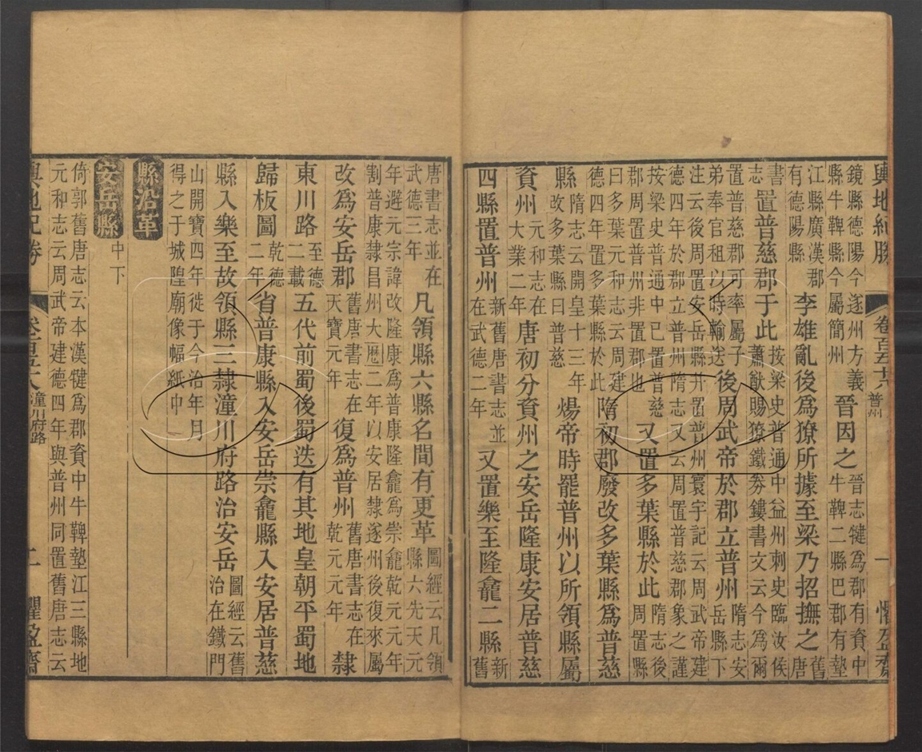 輿地紀勝 卷一百五十八 普州 一 懼盈齋
鏡縣德陽今遂州方義縣牛鞞縣今屬簡州晉因之晉志犍為郡有資中牛鞞二縣巴郡有墊
江縣廣漢郡有德陽縣李雄亂後為獠所據至梁乃招撫之舊唐
書志置普慈郡于此按梁史普通中益州刺史臨汝侯蕭猷賜獠鐵劵鏤書文云今為爾
置普慈郡可率屬子弟奉官租以時輸送後周武帝於郡立普州隋志安岳縣下
注云後周置安岳縣幷置普州寰宇記云周武帝建德四年於郡立普州隋志又云周置普慈郡象之謹
按梁史普通中已置普慈郡周置普州非置郡也又置多葉縣於此隋志後周置縣
曰多葉元和志云周建德四年置多葉縣於此隋初郡廢改多葉縣為普慈
縣隋志云開皇十三年縣改多葉縣曰普慈煬帝時罷普州以所領縣屬
資州元和志在大業二年唐初分資州之安岳隆康安居普慈
四縣置普州新舊唐書志並在武德二年又置樂至隆龕二縣新舊
唐書志並在武德三年凡領縣六縣名間有更革圖經云凡領縣六先天元
年避元宗諱改隆康為普康隆龕為崇龕乾元元年割普康隸昌州大曆二年以安居隸遂州後復來屬
改為安岳郡舊唐書志在天寶元年復為普州舊唐書志在乾元元年隸
東川路至德二載五代前蜀後蜀迭有其地皇朝平蜀地
歸板圖乾德二年省普康縣入安岳崇龕縣入安居普慈
縣入樂至故領縣三隸潼川府路治安岳圖經云舊治在鐵門
山開寶四年徙于今治年月得之于城隍廟像幅紙中
縣沿革
安岳縣中下
倚郭舊唐志云本漢犍為郡資中牛鞞墊江三縣地元和志云周武帝建德四年與普州同置舊唐志云
輿地紀勝 卷一百五十八 潼川府路 二 懼盈齋